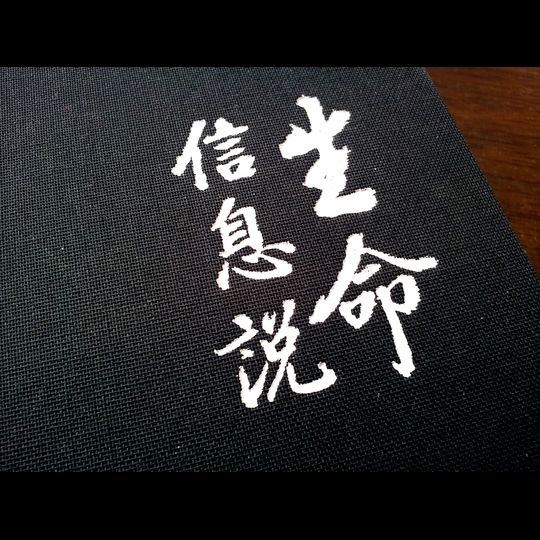 生命
信息说